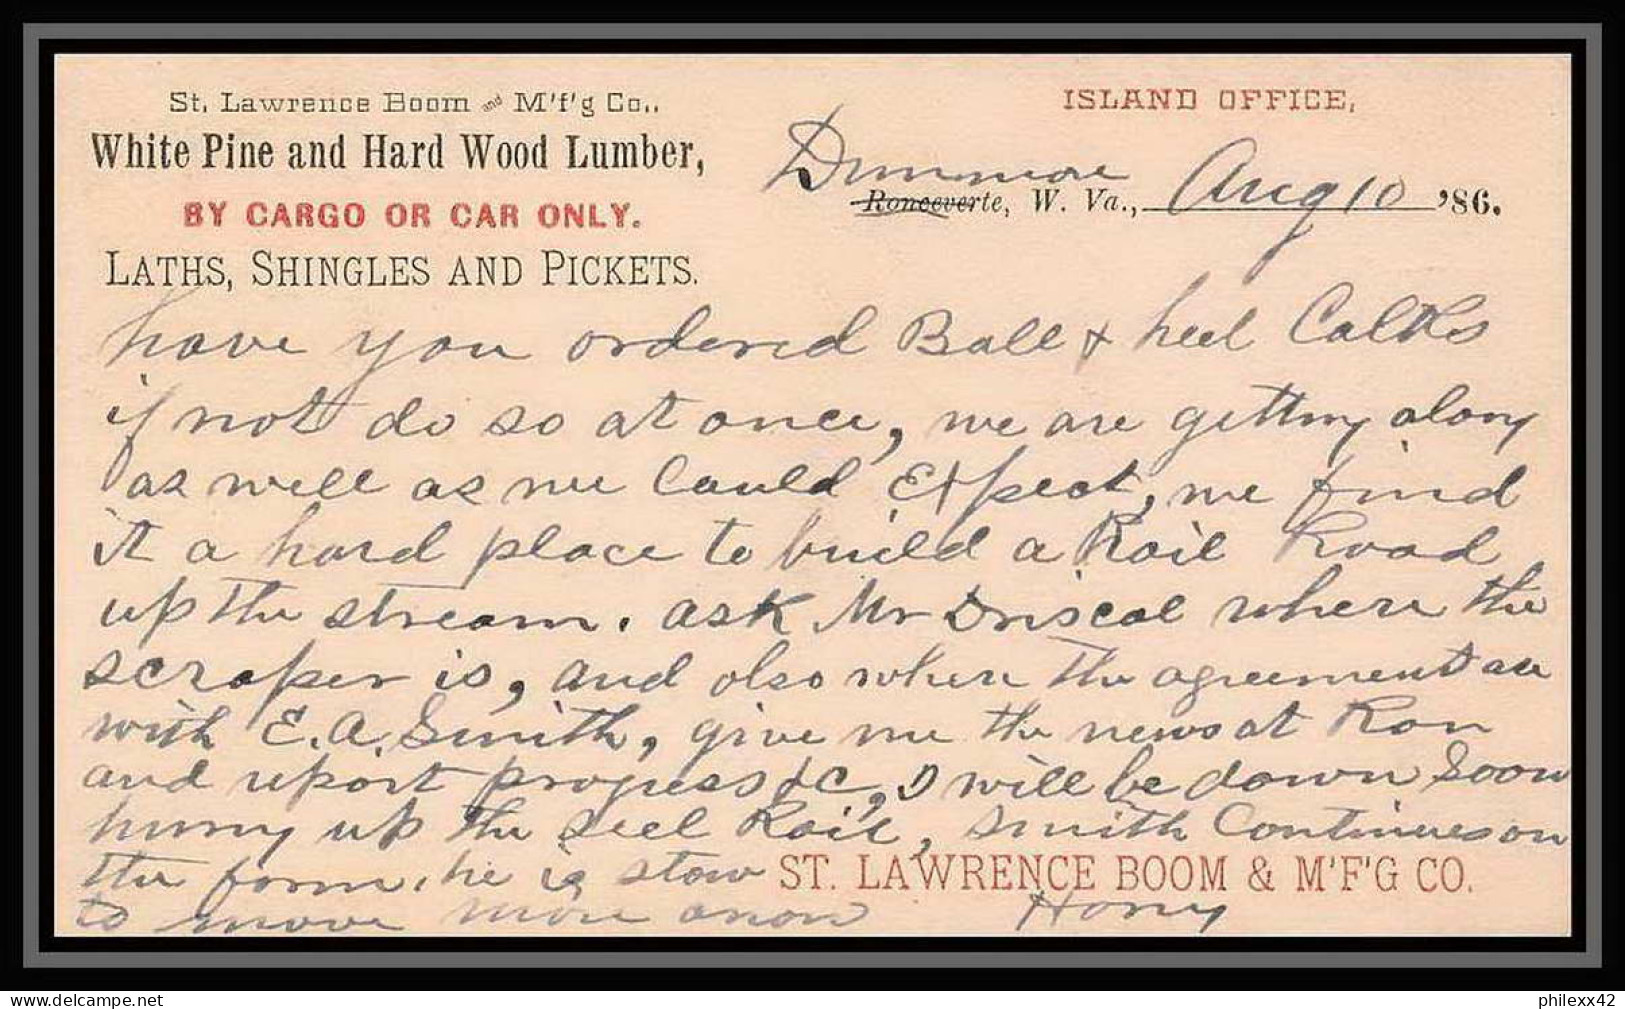 St. Lawrence Boom and M'f'g Co.,
White Pine and Hard Wood Lumber,
BY CARGO OR CAR ONLY.
LATHS, SHINGLES AND PICKETS.
ISLAND OFFICE,
Dunmore
Ronceverte, W. Va., Aug 10 '86.
have you ordered Ball & heel Calks
if not do so at once, we are getting along
as well as we Could Expect, we find
it a hard place to build a Rail Road
up the stream. ask Mr Driscol where the
scraper is, and also where the agreement are
with E. A. Smith, give me the news at Ron
and report progress &C, I will be down Soon
hurry up the steel Rail, Smith Continues on
the farm. he is slow
to move more anon
ST. LAWRENCE BOOM & M'F'G CO.
philexx42
www.delcampe.net